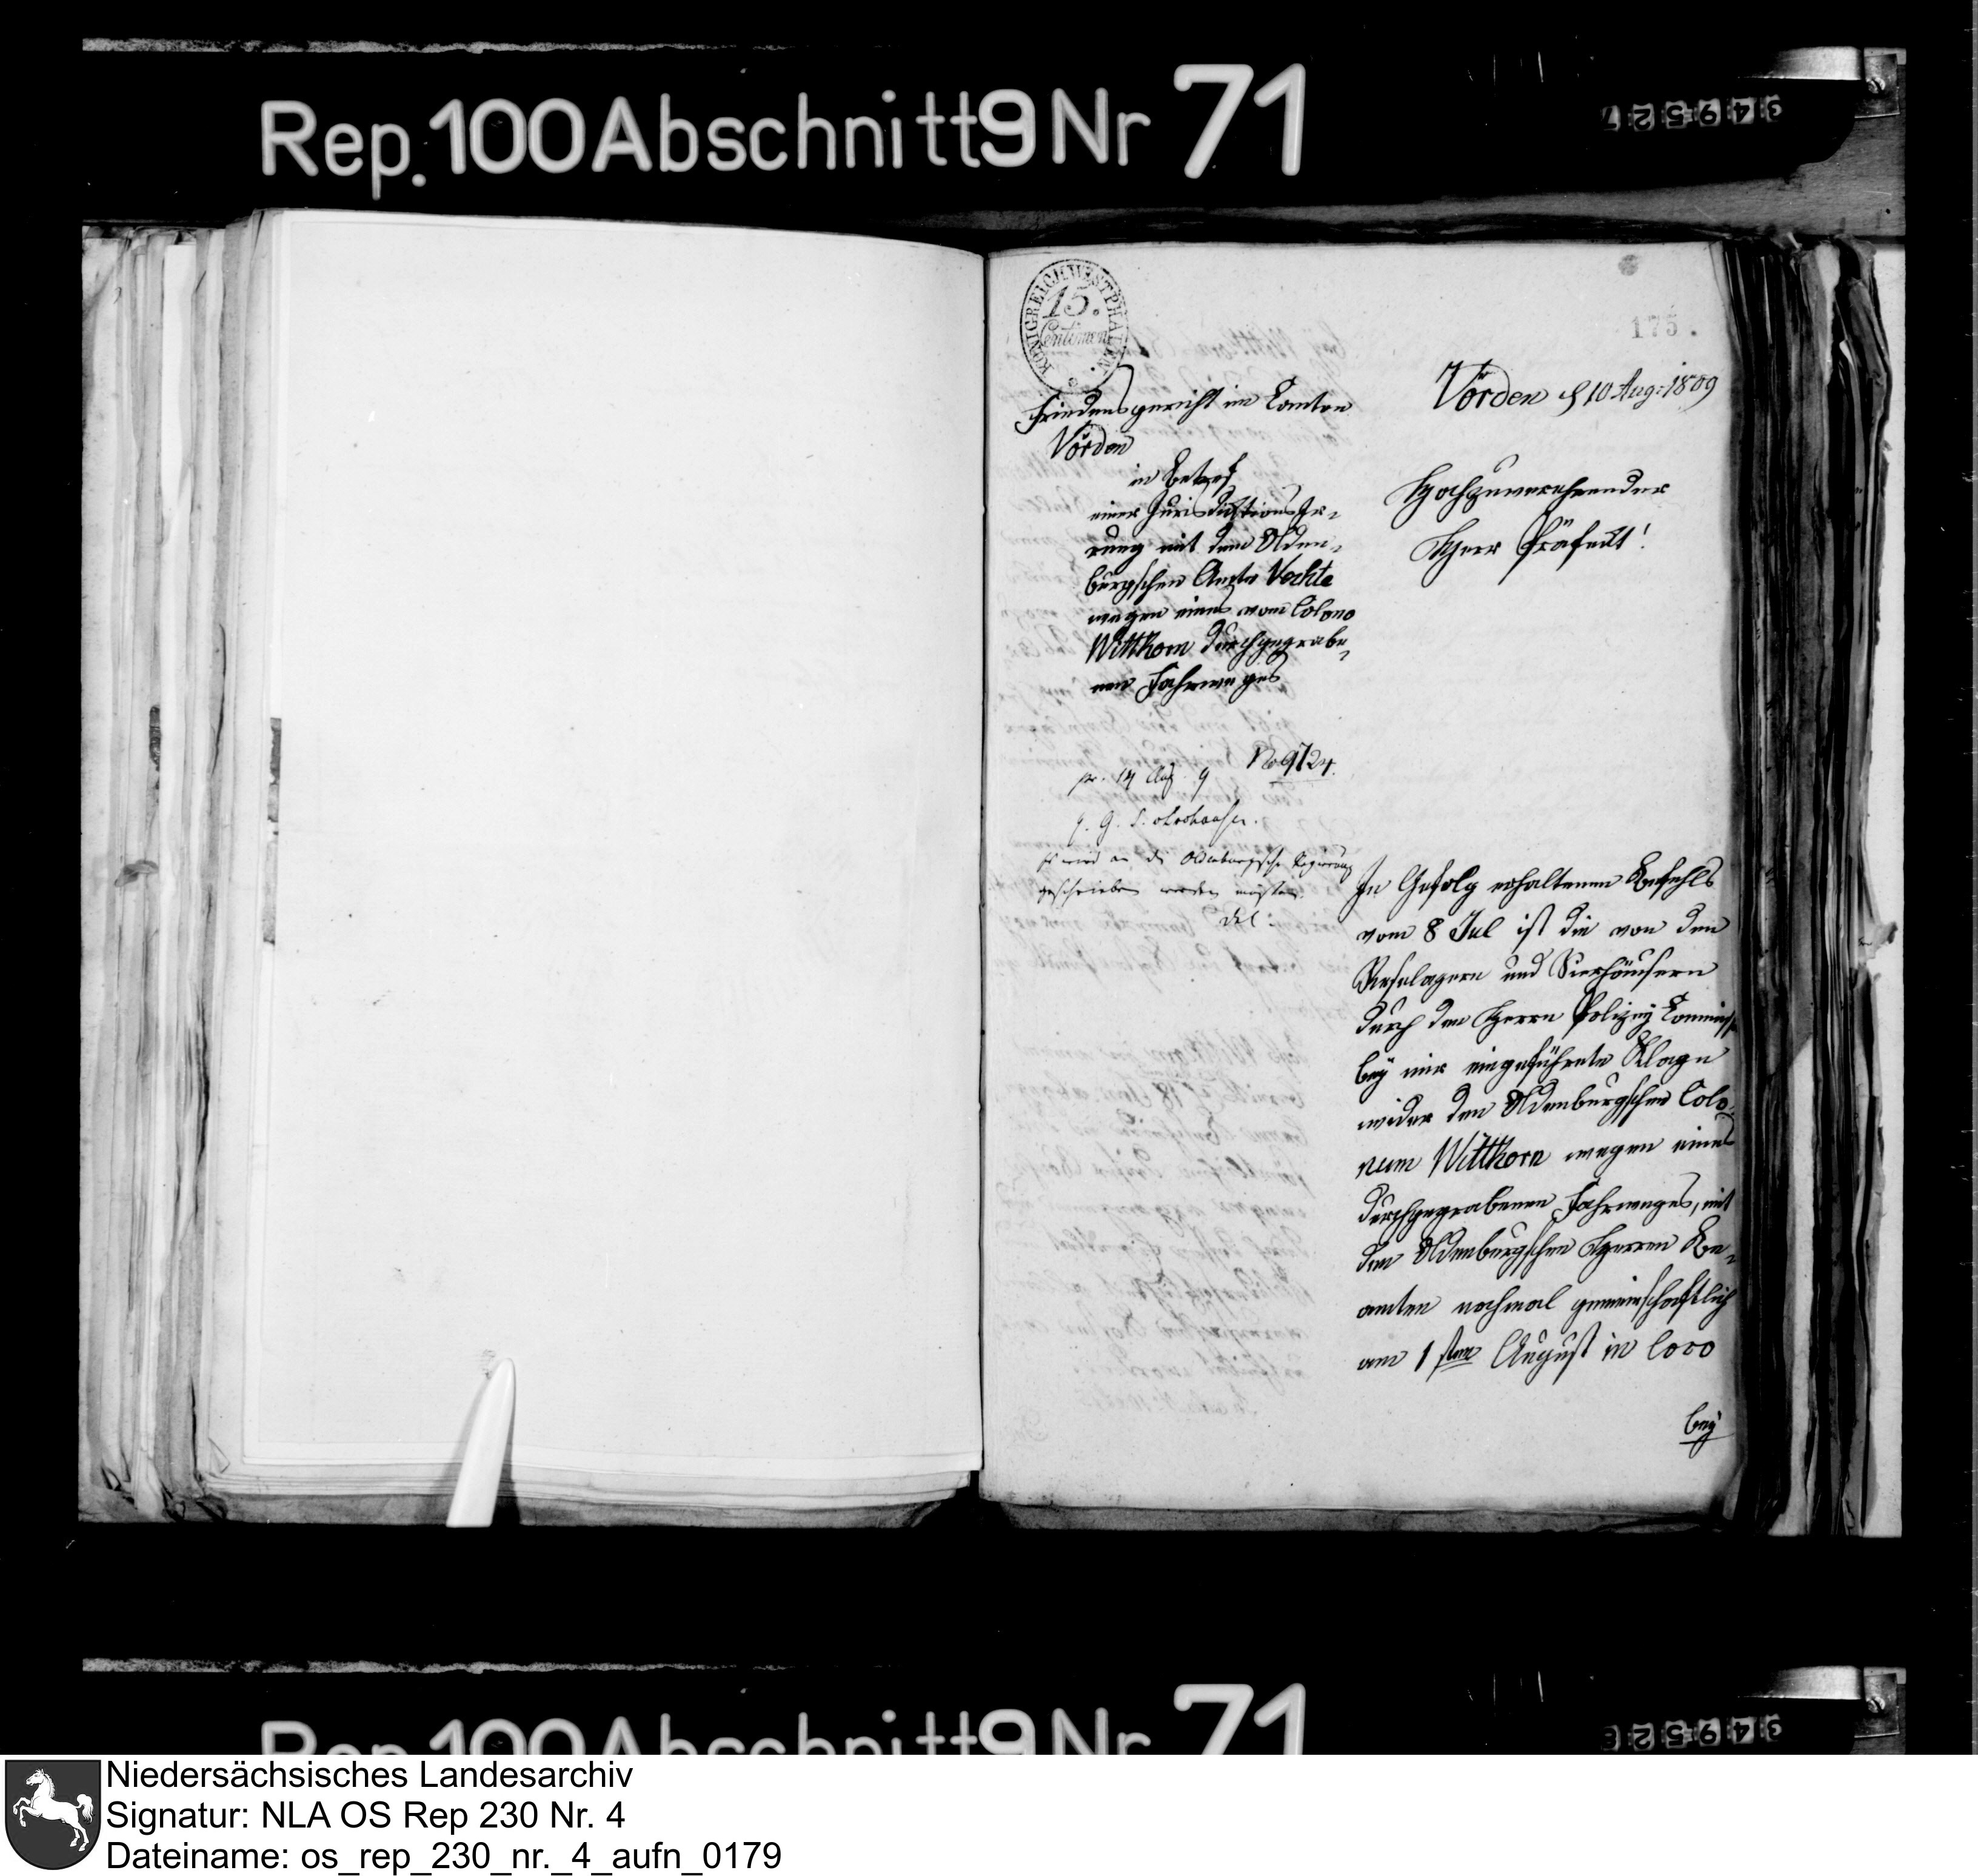 Rep. 100 Abschnitt 9 Nr 71
349527
KÖNIGREICH WESTPHALEN.
15.
Centimen
175.
Friedensgericht im Canton
Vörden
in Betref
einer Jurisdiktions Ir-
rung mit dem Olden-
burgschen Amte Vechte
wegen eines vom Colono
Witthorn durchgegrabe-
nen Fahrweges
No 9724.
pr. 14 Aug. 9
Es wird an die Oldenburgische Regierung
geschrieben werden müssen.
Vörden d 10 Aug: 1809
Hochzuverehrender
Herr Präfect!
In Gefolg erhaltenen Befehls
vom 8 Jul ist die von den
Reselagern und Sierhäusern
durch den Herrn Polizey Commiss
bey mir eingeführete Klage
wider den Oldenburgschen Colo-
num Witthorn wegen eines
durchgegrabenen Fahrweges, mit
den Oldenburgschen Herren Be-
amten nochmal gemeinschaftlich
am 1 sten August in loco
bey
Rep. 100 Abschnitt 9 Nr 71
349528
Niedersächsisches Landesarchiv
Signatur: NLA OS Rep 230 Nr. 4
Dateiname: os_rep_230_nr._4_aufn_0179